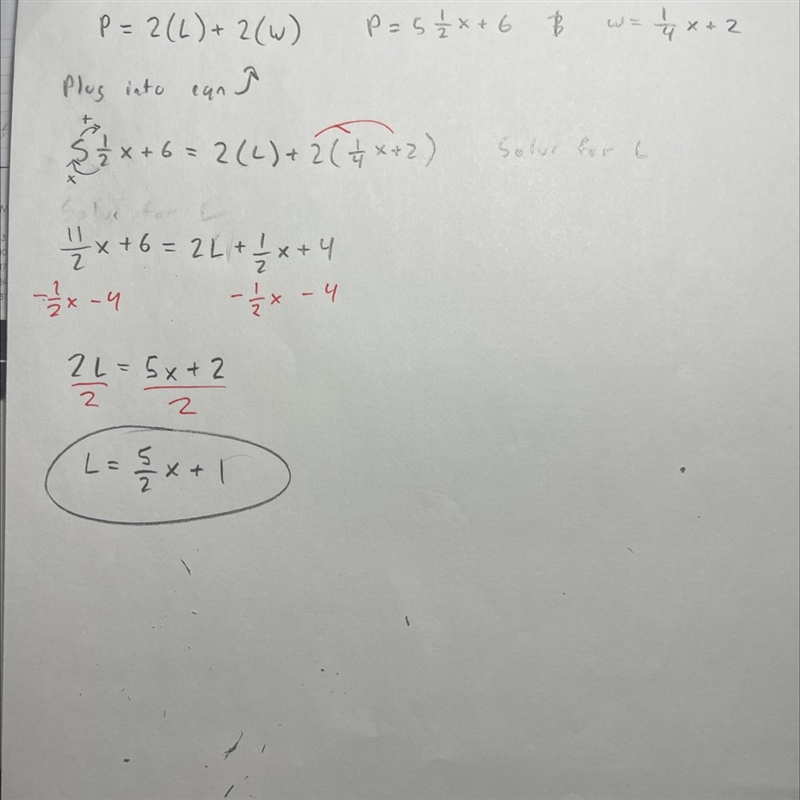 P = 2(L) + 2(W) P = 5 1/2 x + 6 & w = 1/4 x + 2
Plug into eqn
+
5 1/2 x + 6 = 2(L) + 2(1/4 x + 2) Solve for L
x
Solve for L
11/2 x + 6 = 2L + 1/2 x + 4
-1/2 x - 4 -1/2 x - 4
2L/2 = 5x + 2/2
L = 5/2 x + 1